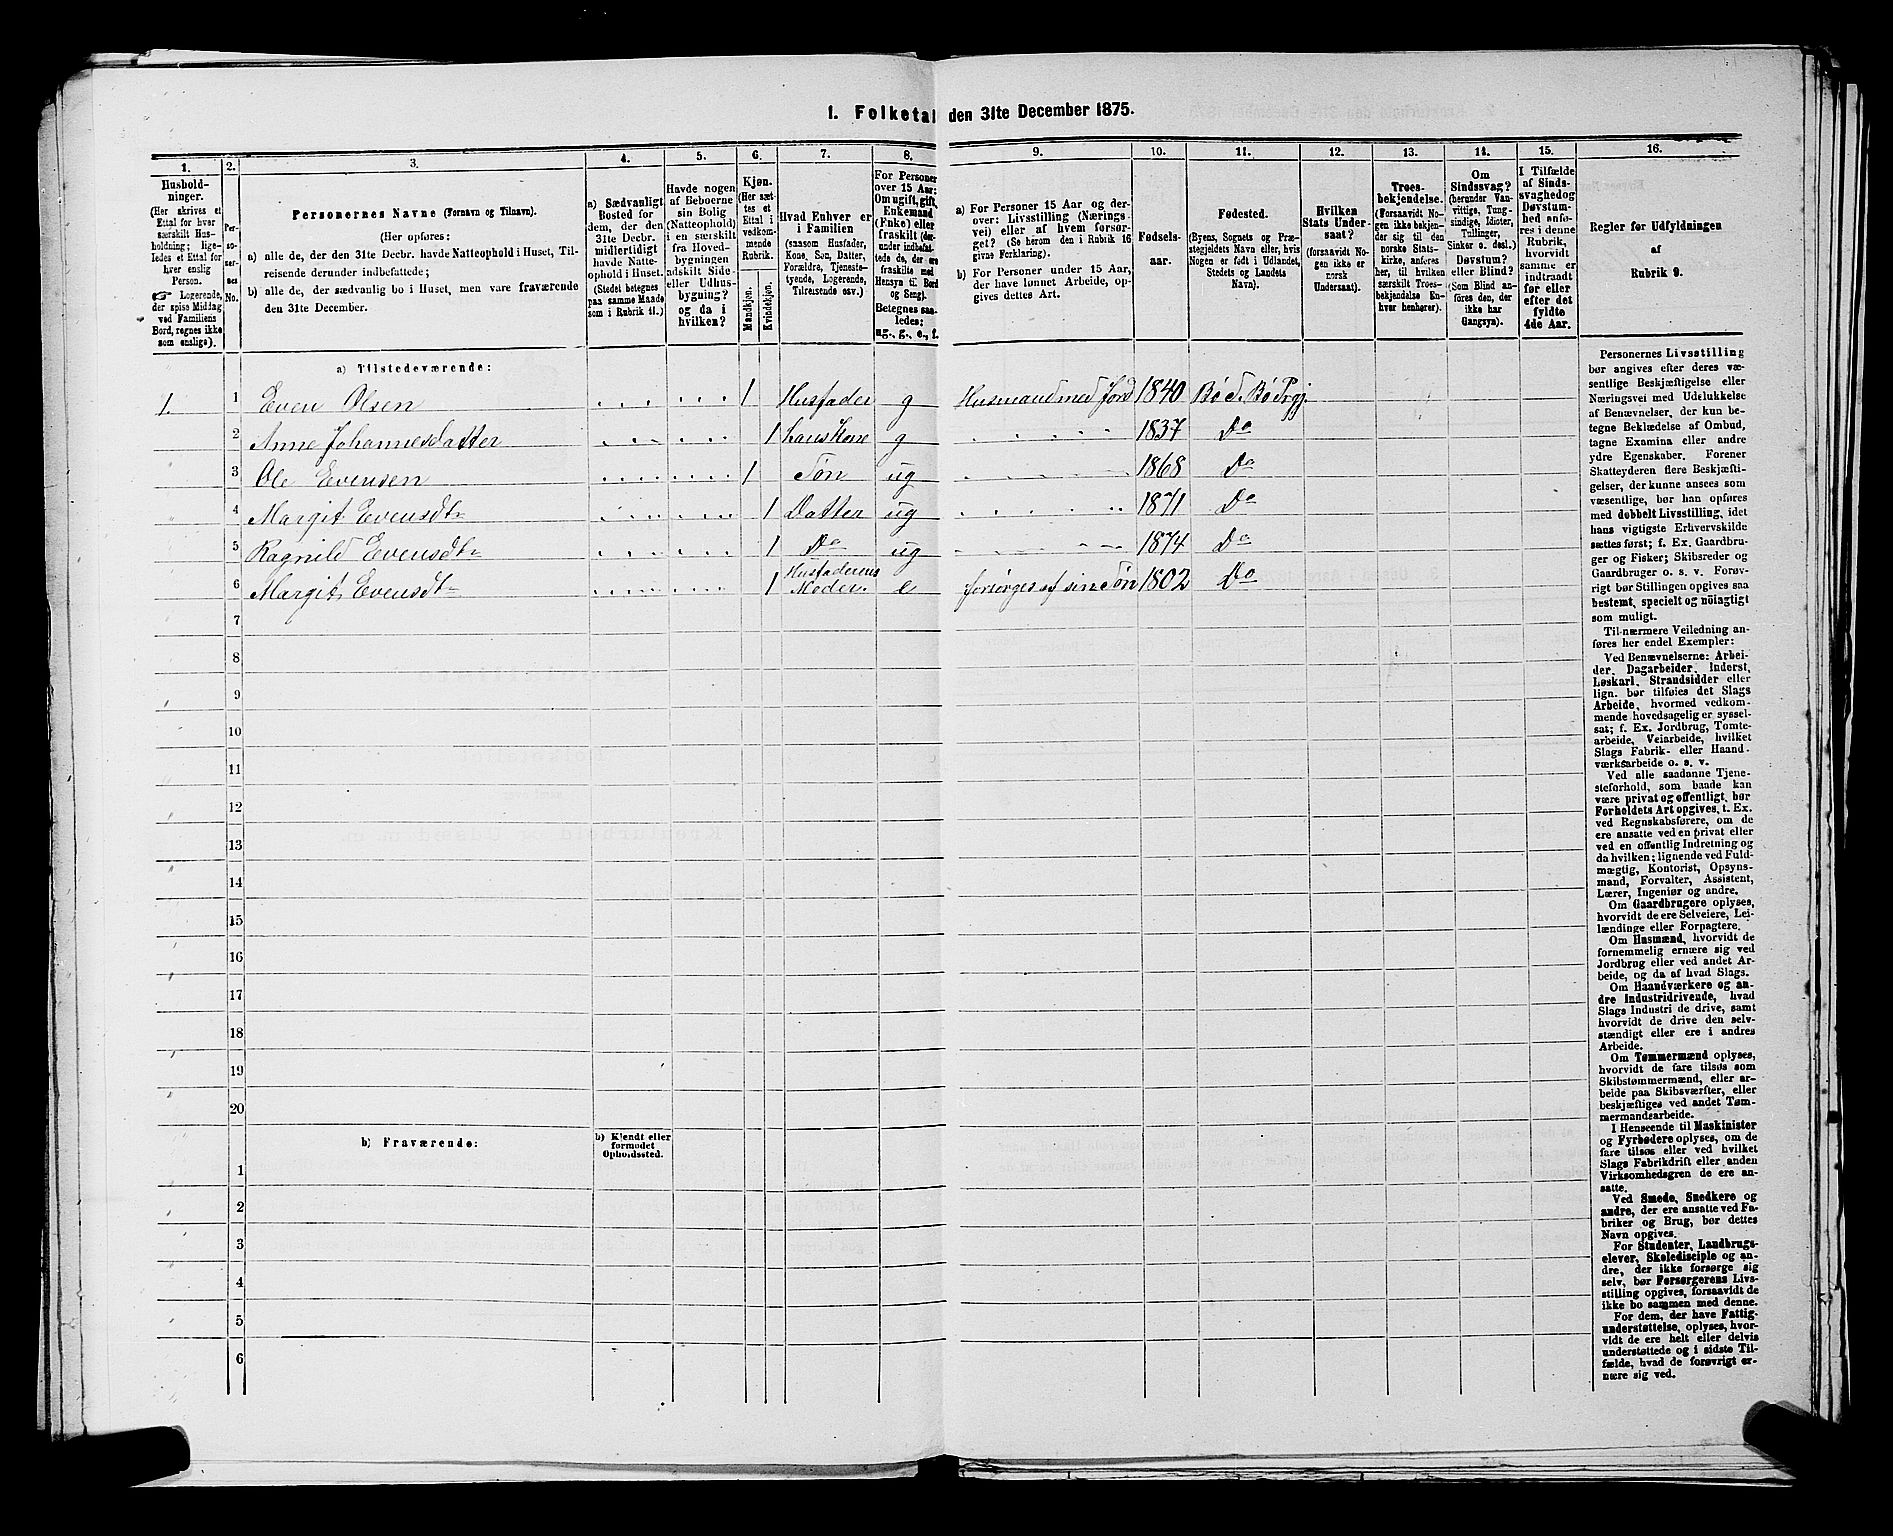 1. Folketal den 31te December 1875.
1. 2. 3. 4. 5. 6. 7. 8. 9. 10. 11. 12. 13. 14. 15. 16.
Husholdninger.
(Her skrives et
Ettal for hver
særskilt Husholdning; ligeledes et Ettal for
hver enslig
Person.
☞ Logerende,
der spise Middag
ved Familiens
Bord, regnes ikke
som enslige).
Personernes No.
Personernes Navne (Fornavn og Tilnavn).
(Her opføres:
a) alle de, der den 31te Decbr. havde Natteophold i Huset, Tilreisende derunder indbefattede;
b) alle de, der sædvanlig bo i Huset, men vare fraværende
den 31te December.
a) Sædvanligt
Bosted for
dem, der den
31te Decbr.
midlertidigt
havde Natteophold i Huset.
(Stedet betegnes
paa samme Maade
som i Rubrik 11.)
Havde nogen
af Beboerne
sin Bolig
(Natteophold)
i en særskilt
fra Hovedbygningen
adskilt Side-
eller Udhusbygning?
og da i
hvilken?
Kjøn.
(Her sættes et
Ettal i
vedkommende
Rubrik.
Mandkjøn.
Kvindekjøn.
Hvad Enhver er
i Familien
(saasom Husfader,
Kone, Søn, Datter,
Forældre, Tjenestetyende, Logerende,
Tilreisende osv.)
For Personer
over 15 Aar:
Om ugift, gift,
Enkemand
(Enke) eller
fraskilt (derunder indbefattede de, der ere
fraskilte med
Hensyn til Bord
og Seng).
Betegnes saaledes:
ug., g., e., f.
a) For Personer 15 Aar og derover: Livsstilling (Næringsvei) eller af hvem forsørget? (Se herom den i Rubrik 16
givne Forklaring).
b) For Personer under 15 Aar,
der have lønnet Arbeide, opgives dettes Art.
Fødselsaar.
Fødested.
(Byens, Sognets og Præstegjeldets Navn eller, hvis
Nogen er født i Udlandet,
Stedets og Landets
Navn).
Hvilken
Stats Undersaat?
(forsaavidt Nogen ikke er
norsk
Undersaat).
Troesbekjendelse.
(Forsaavidt Nogen ikke bekjender sig til den
norske Statskirke, anføres
her, til hvilken
særskilt Troesbekjendelse Enhver henhører).
Om
Sindssvag?
(herunder Vanvittige, Tungsindige, Idioter,
Tullinger,
Sinker o. desl.)
Døvstum?
eller Blind?
(Som Blind anføres den, der
ikke har
Gangsyn).
I Tilfælde
af Sindssvaghed og
Døvstumhed anføres i denne
Rubrik,
hvorvidt
samme er
indtraadt
før eller
efter det
fyldte
4de Aar.
Regler for Udfyldningen
af
Rubrik 9.
a) Tilstedeværende:
1. 1 Even Olsen 1 Husfader g Husmand med Jord 1840 Bø d. Bø Prgj.
2 Anne Johannesdatter 1 hans Kone g 1837 Do
3 Ole Evensen 1 Søn ug 1868 Do
4 Margit Evensdtr 1 Datter ug 1871 Do
5 Ragnild Evensdtr 1 Do ug 1874 Do
6 Margit Evensdtr 1 Husfaderens Moder. e forsørges af sin Søn 1802 Do
7
8
9
10
11
12
13
14
15
16
17
18
19
20
b) Fraværende:
b) Kjendt eller
formodet
Opholdssted.
1
2
3
4
5
6
Personernes Livsstilling
bør angives efter deres væsentlige Beskjæftigelse eller
Næringsvei med Udelukkelse
af Benævnelser, der kun betegne Beklædelse af Ombud,
tagne Examina eller andre
ydre Egenskaber. Forener
Skatteyderen flere Beskjæftigelser, der kunne ansees som
væsentlige, bør han opføres
med dobbelt Livsstilling, idet
hans vigtigste Erhvervskilde
sættes først; f. Ex. Gaardbruger og Fisker; Skibsreder og
Gaardbruger o. s. v. Forøvrigt bør Stillingen opgives saa
bestemt, specielt og nöiagtigt
som muligt.
Til nærmere Veiledning anføres her endel Exempler:
Ved Benævnelserne: Arbeider, Dagarbeider, Inderst,
Løskarl, Strandsidder eller
lign. bør tilføies det Slags
Arbeide, hvormed vedkommende hovedsagelig er sysselsat; f. Ex. Jordbrug, Tomtearbeide, Veiarbeide, hvilket
Slags Fabrik- eller Haandværksarbeide o. s. v.
Ved alle saadanne Tjenesteforhold, som baade kan
være privat og offentligt, bør
Forholdets Art opgives, t. Ex.
ved Regnskabsførere, om de
ere ansatte ved en privat eller
ved en offentlig Indretning og
da hvilken; lignende ved Fuldmægtig, Kontorist, Opsynsmand, Forvalter, Assistent,
Lærer, Ingeniør og andre.
Om Gaardbrugere oplyses,
hvorvidt de ere Selveiere, Leilændinge eller Forpagtere.
Om Husmænd, hvorvidt de
fornemmelig ernære sig ved
Jordbrug eller ved andet Arbeide, og da af hvad Slags.
Om Haandværkere og andre Industridrivende, hvad
Slags Industri de drive, samt
hvorvidt de drive den selvstændigt eller ere i andres
Arbeide.
Om Tømmermænd oplyses,
hvorvidt de fare tilsøs som
Skibstømmermænd, eller arbeide paa Skibsværfter, eller
beskjæftiges ved andet Tømmermandsarbeide.
I Henseende til Maskinister
og Fyrbødere oplyses, om de
fare tilsøs eller ved hvilket
Slags Fabrikdrift eller anden
Virksomhedsgren de ere ansatte.
Ved Smede, Snedkere og
andre, der ere ansatte ved Fabriker og Brug, bør dettes
Navn opgives.
For Studenter, Landbrugselever, Skoledisciple og andre, der ikke forsørge sig
selv, bør Forsørgerens Livsstilling opgives, forsaavidt de
ikke bo sammen med denne.
For dem, der have Fattigunderstøttelse, oplyses, hvorvidt de ere helt eller delvis
understøttede og i sidste Tilfælde, hvad de forøvrigt ernære sig ved.